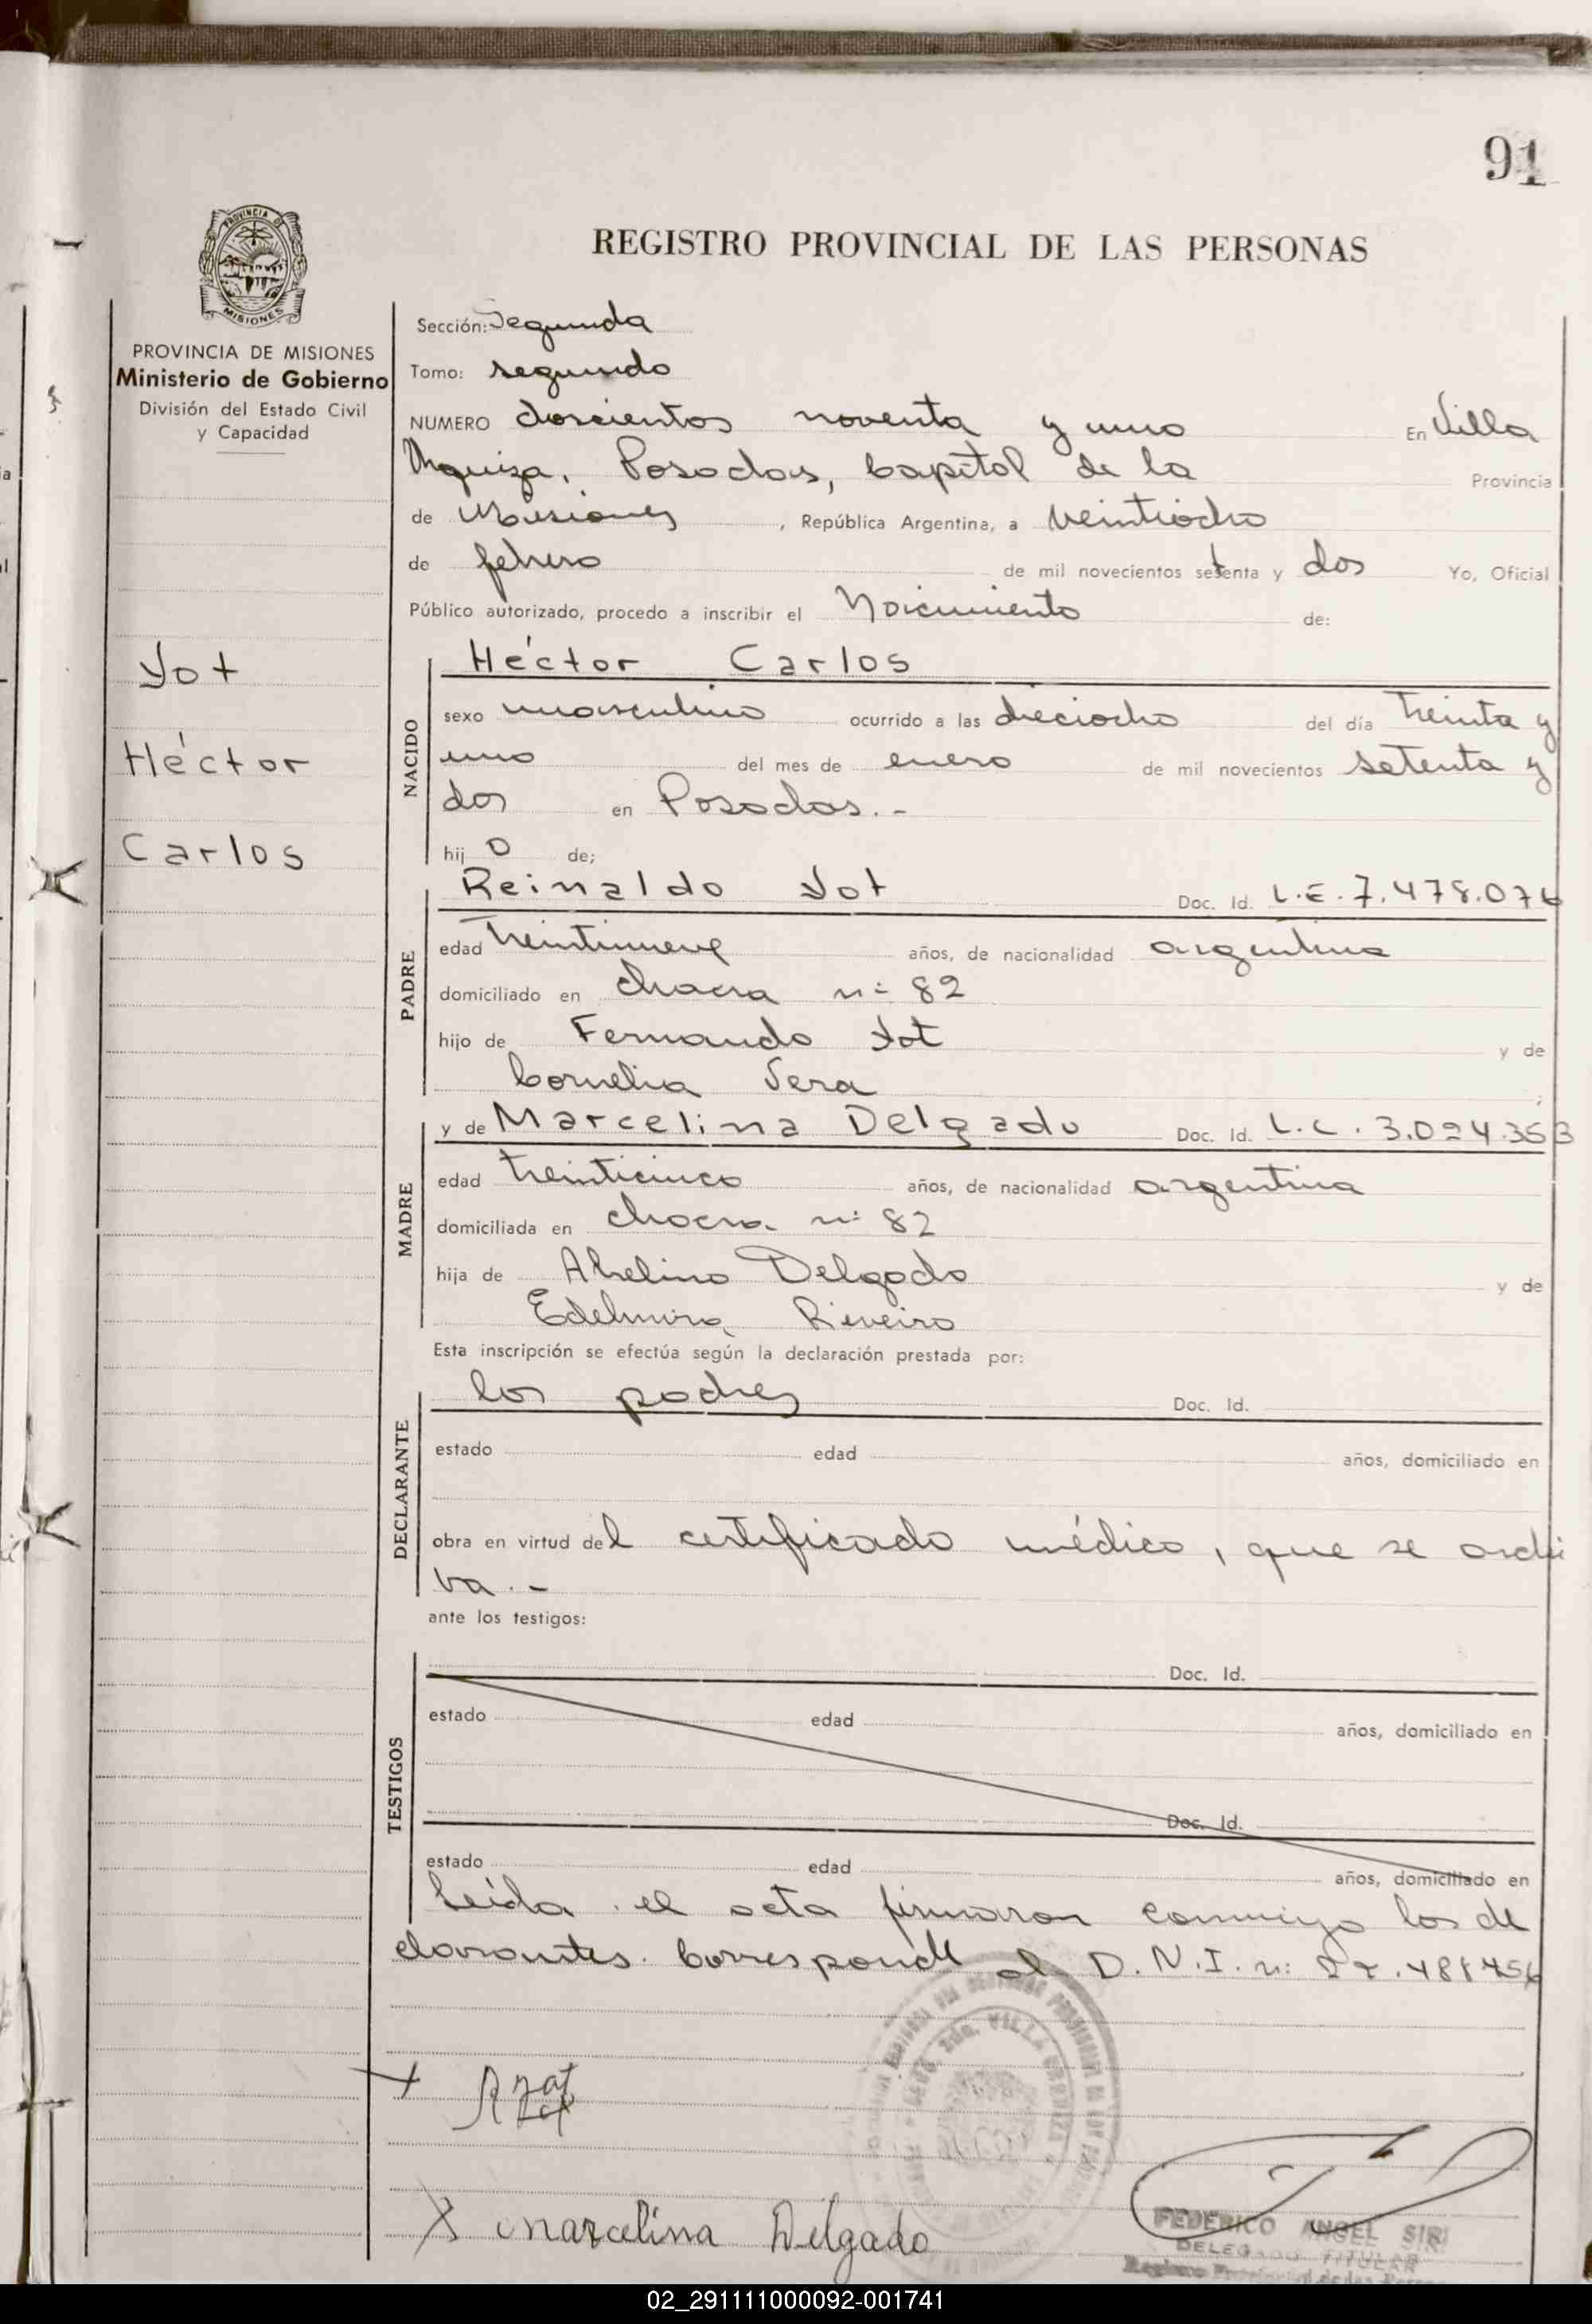 91
REGISTRO PROVINCIAL DE LAS PERSONAS
PROVINCIA DE MISIONES
PROVINCIA DE MISIONES
Ministerio de Gobierno
División del Estado Civil
y Capacidad
Yot
Héctor
Carlos
Sección: Segunda
Tomo: segundo
NUMERO doscientos noventa y uno En Villa
Urquiza, Posadas, Capital de la Provincia
de Misiones, República Argentina, a veintiocho
de febrero de mil novecientos setenta y dos Yo, Oficial
Público autorizado, procedo a inscribir el Nacimiento de:
NACIDO
Héctor Carlos
sexo masculino ocurrido a las dieciocho del día treinta y
uno del mes de enero de mil novecientos setenta y
dos en Posadas.-
hij o de;
PADRE
Reinaldo Yot Doc. Id. L.E. 7.478.076
edad treintinueve años, de nacionalidad argentina
domiciliado en chacra nº 82
hijo de Fernando Yot y de
Cornelia Vera ;
MADRE
y de Marcelina Delgado Doc. Id. L.C. 3.024.353
edad treinticinco años, de nacionalidad argentina
domiciliada en chacra nº 82
hija de Abelino Delgado y de
Edelmira Riveiro
Esta inscripción se efectúa según la declaración prestada por:
DECLARANTE
los padres Doc. Id.
estado edad años, domiciliado en
obra en virtud del certificado médico, que se archi
va.-
ante los testigos:
TESTIGOS
Doc. Id.
estado edad años, domiciliado en
Doc. Id.
estado edad años, domiciliado en
Leída el acta firmaron conmigo los de
clarantes. Corresponde al D.N.I. n:
Marcelina Delgado
VILLA URQUIZA
FEDERICO ANGEL SIRI
DELEGADO TITULAR
02_291111000092-001741